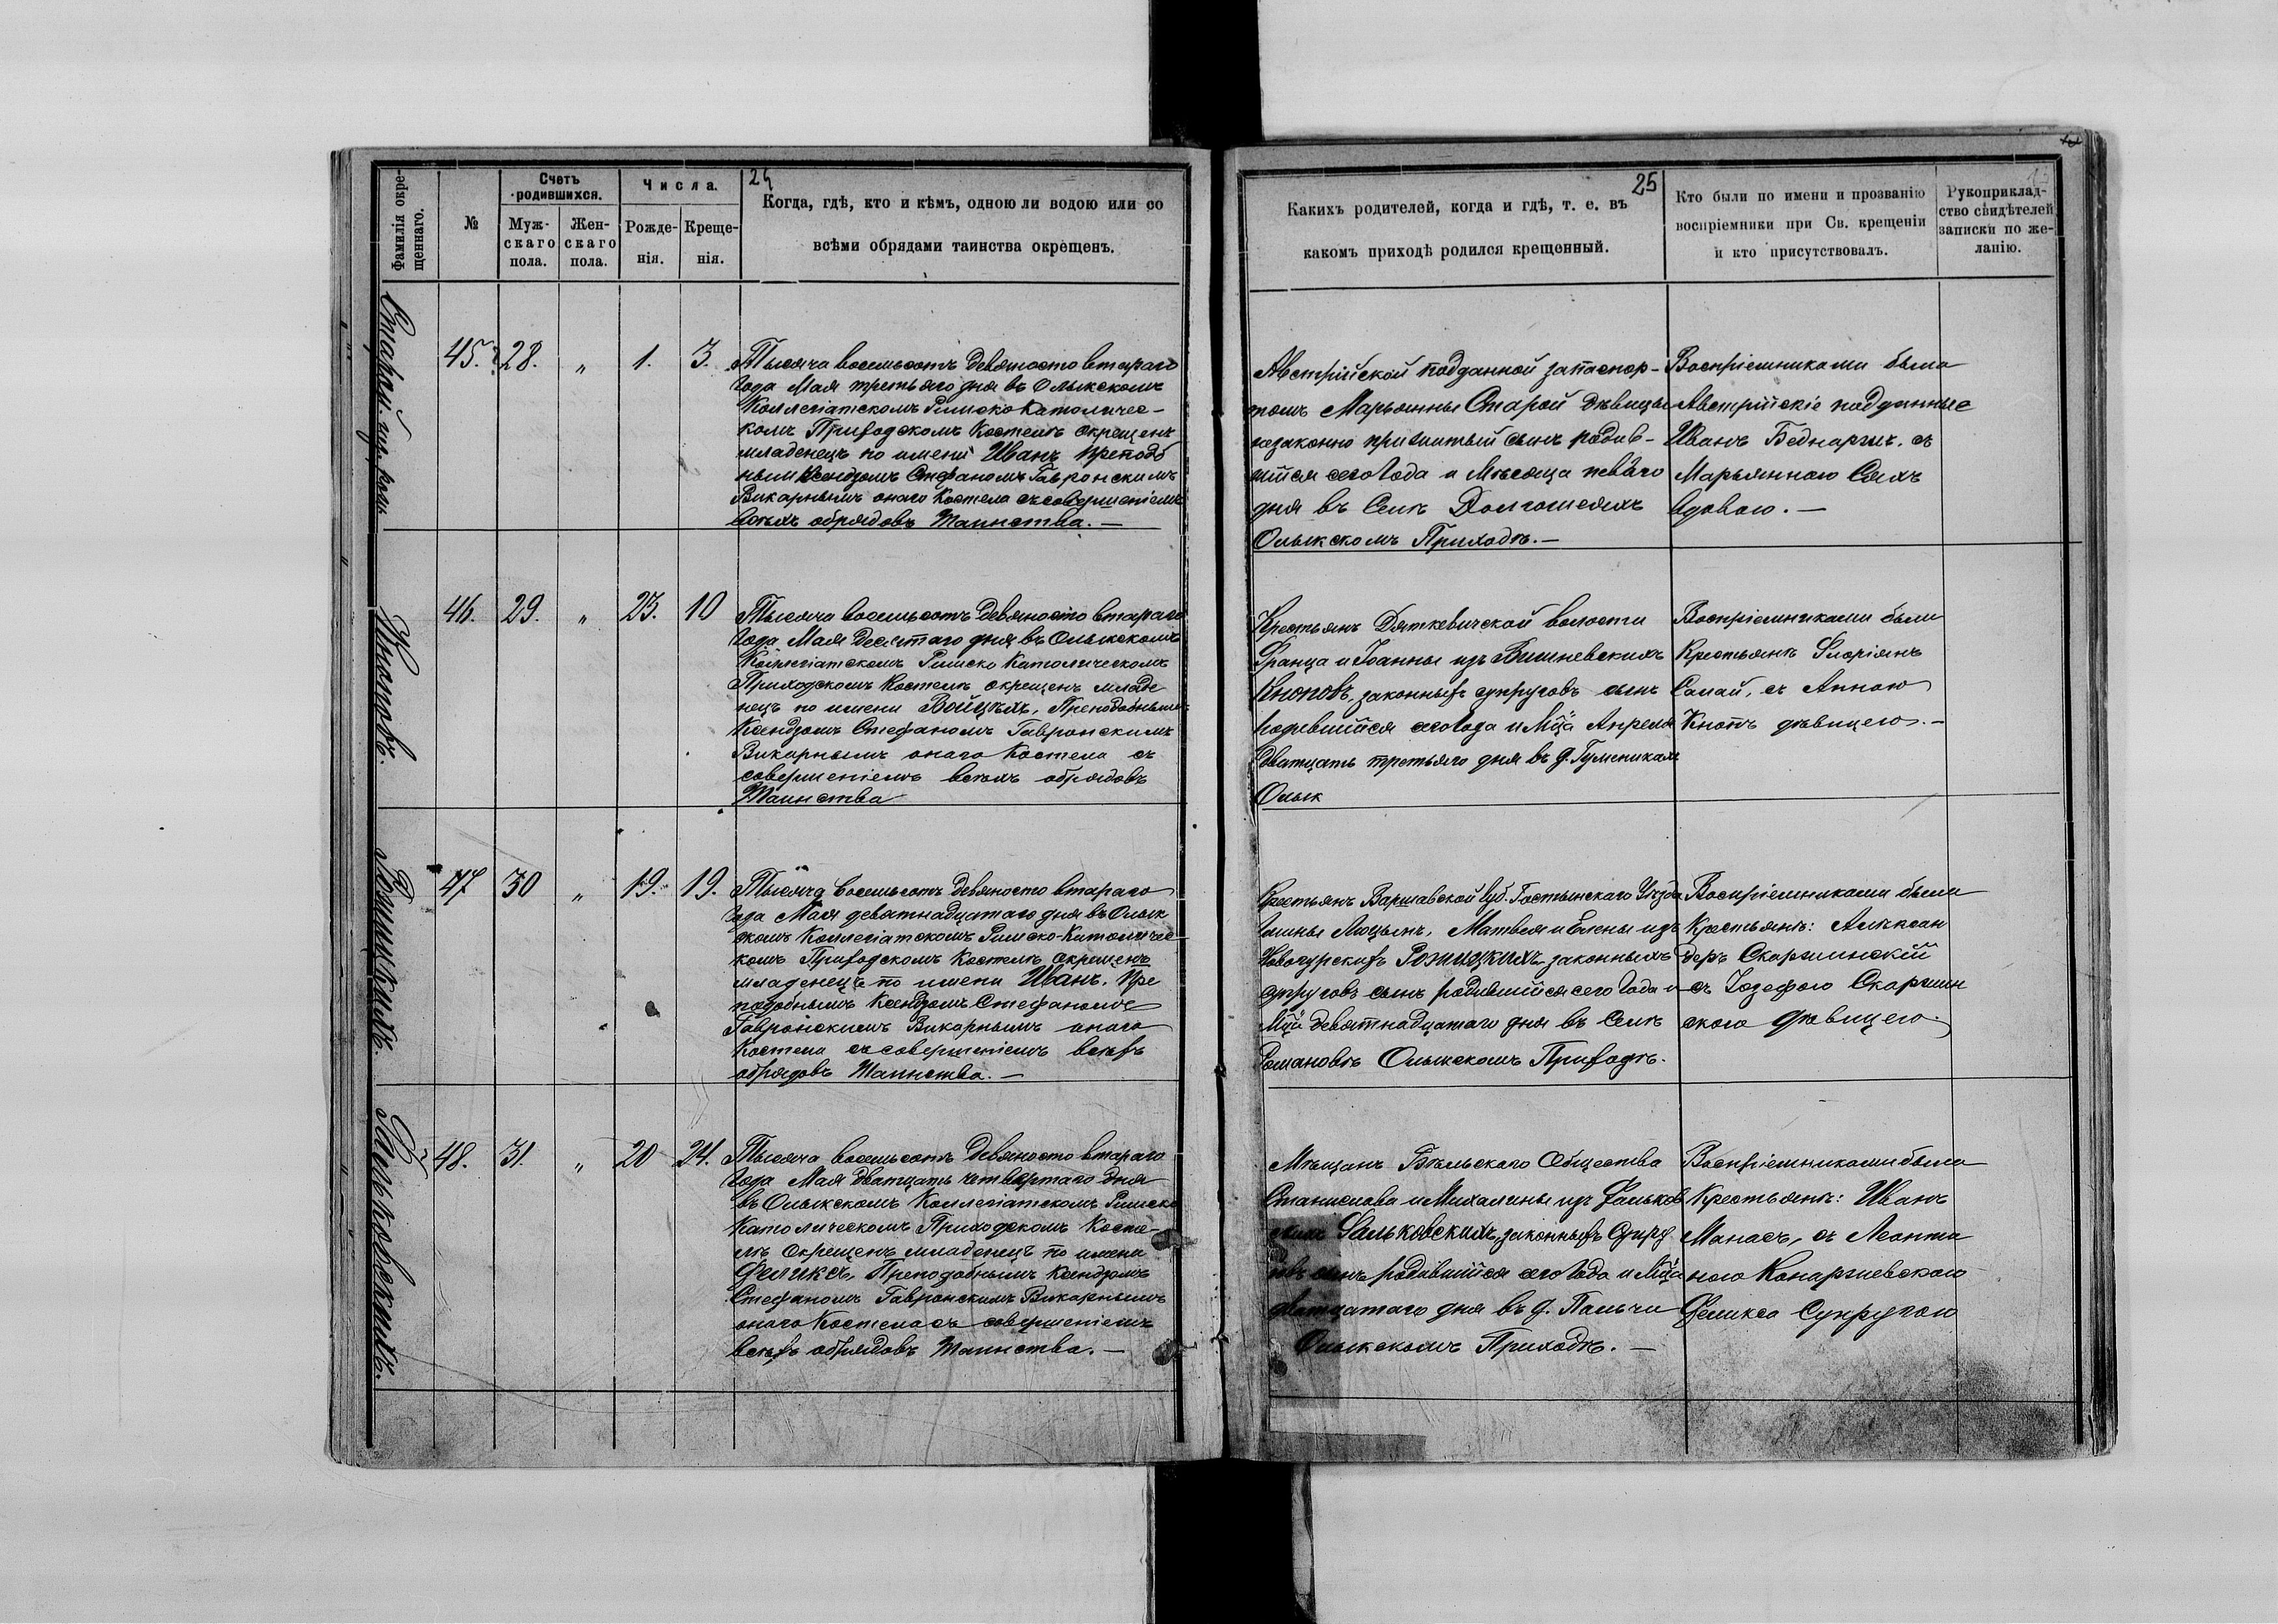 24
Фамилія окре-
щеннаго.
№
Счетъ
родившихся.
Муж-
скаго
пола.
Жен-
скаго
пола.
Числа.
Рожде-
нія.
Креще-
нія.
Когда, гдѣ, кто и кѣмъ, одною ли водою или со
всѣми обрядами таинства окрещенъ.
25
Какихъ родителей, когда и гдѣ, т. е. въ
какомъ приходѣ родился крещенный.
Кто были по имени и прозванію
воспріемники при Св. крещеніи
и кто присутствовалъ.
Рукоприклад-
ство свидѣтелей
записки по же-
ланію.
Старой
45. 28. „ 1. 3.
Тысяча восемьсотъ девяносто втараго
года Мая третьяго дня въ Олыкскомъ
Коллегіатскомъ Римско Католичес-
комъ Приходскомъ Костелѣ окрещенъ
младенецъ по имени Иванъ преподо
нымъ Ксендзомъ Стефаномъ Гавронскимъ
Викарнымъ онаго Костела съ совершеніемъ
всѣхъ обрядовъ Таинства. —
Австрійской подданной запаспор-
томъ Марьянны Старой дѣвицы
незаконно прижитый сынъ родив-
шійся сего года и Мѣсяца перваго
дня въ Селѣ Долгошеяхъ
Олыкскомъ Приходѣ. —
Воспріемниками были
Австрійскіе подданные
Иванъ Беднаржъ, съ
Марьянною Сяхъ
вдовою. —
Кноповъ.
46. 29. „ 23. 10
Тысяча восемьсотъ девяносто втараго
года Мая десятаго дня въ Олыкскомъ
Коллегіатскомъ Римско Католическомъ
Приходскомъ Костелѣ окрещенъ младе
нецъ по имени Войцѣхъ, Преподобнымъ
Ксендзомъ Стефаномъ Гавронскимъ
Викарнымъ онаго Костела съ
совершеніемъ всѣхъ обрядовъ
Таинства
Крестьянъ Дяткевичской волости
Франца и Іоанны изъ Вишневскихъ
Кноповъ, законныхъ супруговъ сынъ
родившійся сего года и Мца Апреля
Дватцать третьяго дня въ д. Гуменикахъ
Олык
Воспріемниками были
Крестьянѣ Флоріянъ
Салай, съ Анною
Кнопъ дѣвицею. —
Рожицкихъ.
47 30 „ 19. 19.
Тысяча восемьсотъ девяносто втараго
года Мая деватнадцатаго дня въ Олык
скомъ Коллегіатскомъ Римско-Католичес
комъ Приходскомъ Костелѣ окрещенъ
младенецъ по имени Иванъ. Пре
подобнымъ Ксендзомъ Стефаномъ
Гавронскимъ Викарнымъ онаго
Костела съ совершеніемъ всѣхъ
обрядовъ Таинства. —
Крестьянъ Варшавской Губ. Гостынскаго Уѣзда
Гмины Люцынъ, Матвея и Елены изъ
Рожицкихъ законныхъ
супруговъ сынъ родившійся сего года и
Мца девятнадцатаго дня въ Селѣ
Романовѣ Олыкскомъ Приходѣ.
Воспріемниками были
Крестьянѣ: Алексан
деръ Скаржинскій
съ Іозефою Скаржин
скою дѣвицею.
Фальковскихъ.
48. 31. „ 20 24.
Тысяча восемьсотъ девяносто втараго
года Мая дватцать четвертаго дня
въ Олыкскомъ Коллегіатскомъ Римско
Католическомъ Приходскомъ Косте-
лѣ окрещенъ младенецъ по имени
Феликсъ, Преподобнымъ Ксендзомъ
Стефаномъ Гавронскимъ Викарнымъ
онаго Костела съ совершеніемъ
всѣхъ обрядовъ Таинства. —
Мѣщанъ Бѣльскаго Общества
Станислава и Михалины изъ Фальков
скихъ Фальковскихъ, законныхъ Супру
говъ сынъ родившійся сего года и Мца
дватцатаго дня въ д. Пальчи
Олыкскомъ Приходѣ. —
Воспріемниками были
Крестьянѣ: Иванъ
Манасъ, съ Леонти
ною Конаржевскою
Феликса Супругою